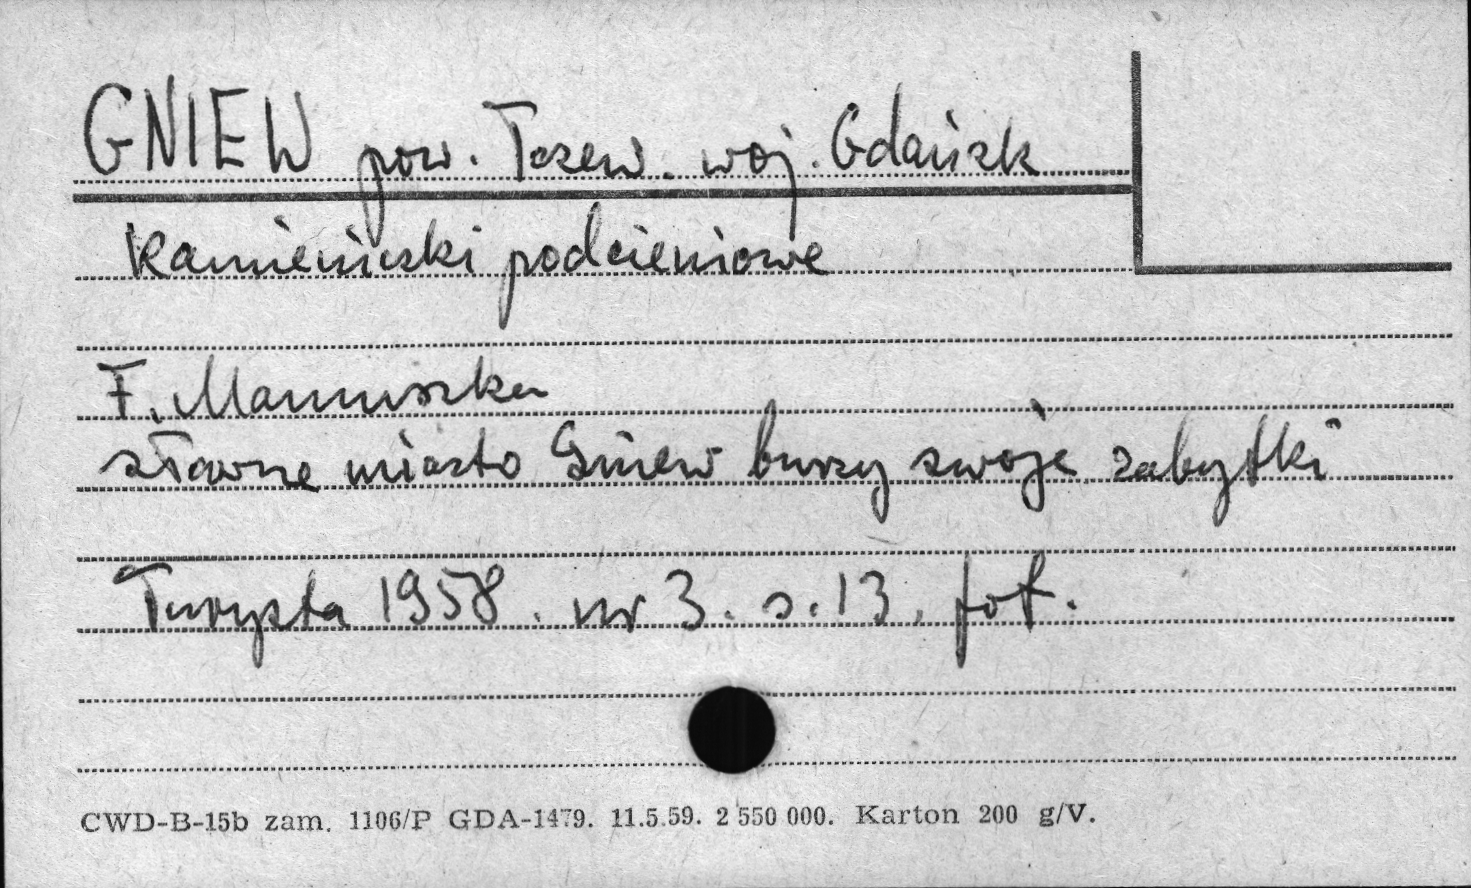 GNIEW pow. Tczew. woj. Gdańsk
Kamieniczki podcieniowe
F. Mamuszka
sławne miasto Gniew burzy swoje zabytki
Turysta 1958. nr 3. s. 13. fot.
CWD-B-15b zam. 1106/P GDA-1479. 11.5.59. 2 550 000. Karton 200 g/V.